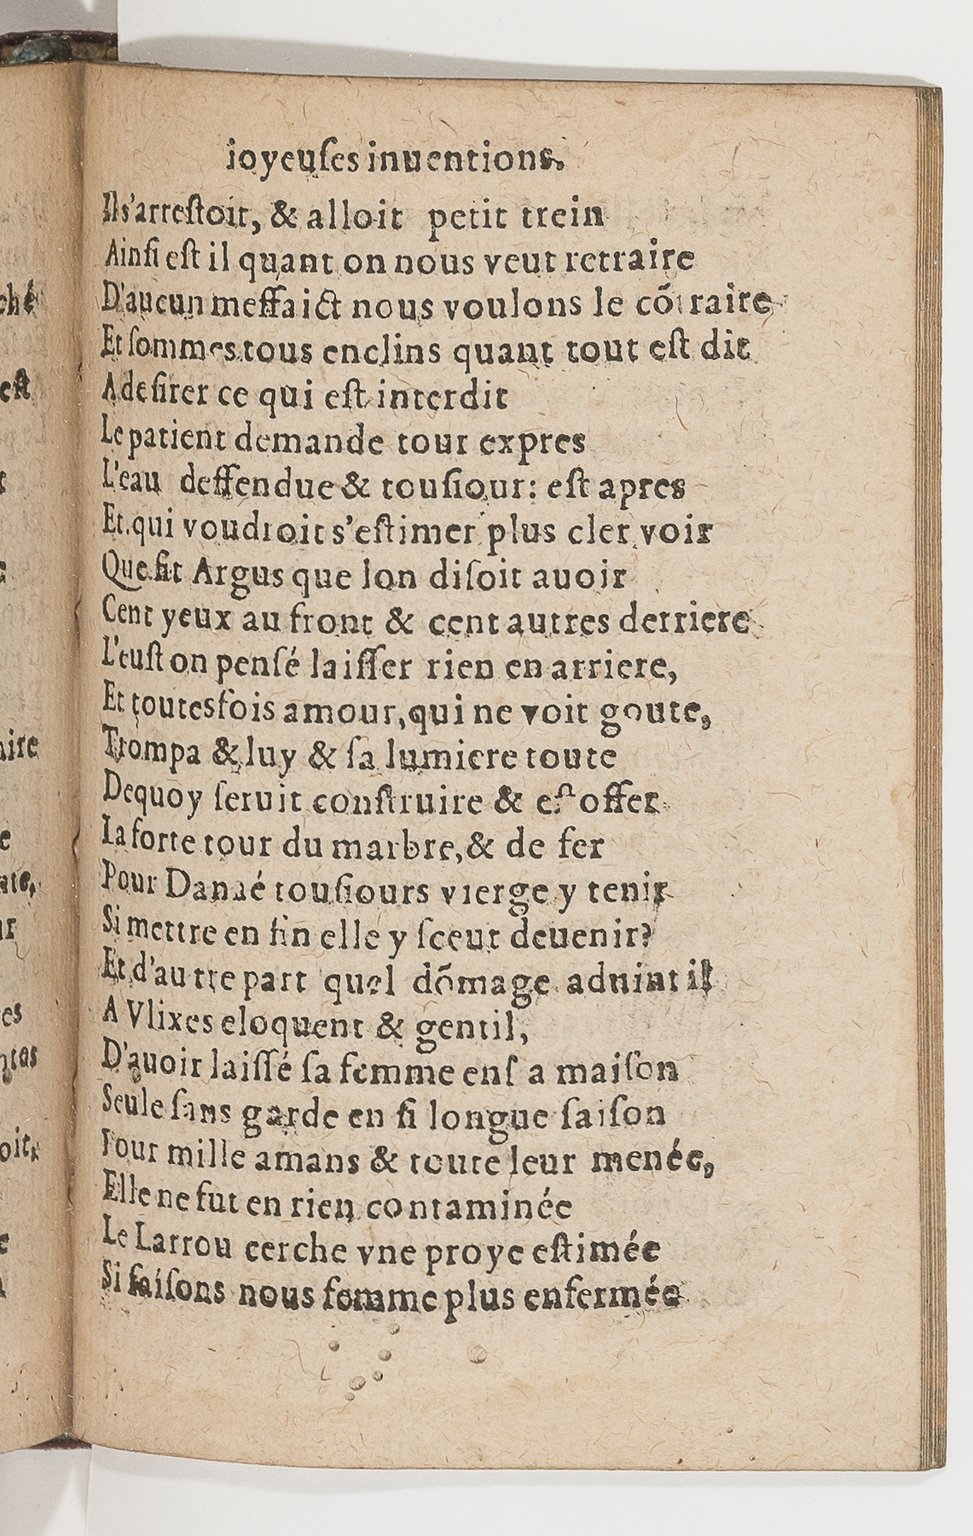 ioyeuſes inuentions.
Il s'arreſtoit, & alloit petit trein
Ainſi eſt il quant on nous veut retraire
D'aucun meffaict nous voulons le cõtraire
Et ſommes tous enclins quant tout eſt dit
A deſirer ce qui eſt interdit
Le patient demande tour expres
L'eau deffendue & touſiour: eſt apres
Et qui voudroit s'eſtimer plus cler voir
Que fit Argus que lon diſoit auoir
Cent yeux au front & cent autres derriere
L'euſt on penſé laiſſer rien en arriere,
Et toutesfois amour, qui ne voit goute,
Trompa & luy & ſa lumiere toute
Dequoy ſeruit conſtruire & eſtoffer
La forte tour du marbre, & de fer
Pour Danaé touſiours vierge y tenir
Si mettre en fin elle y ſceut deuenir?
Et d'autre part quel dõmage aduint il
A Vlixes eloquent & gentil,
D'auoir laiſſé ſa femme enſ a maiſon
Seule ſans garde en ſi longue ſaiſon
Pour mille amans & toute leur menée,
Elle ne fut en rien contaminée
Le Larrou cerche vne proye eſtimée
Si faiſons nous femme plus enfermée
ché
eſt
aire
e
ate,
ur
es
ntas
oit,